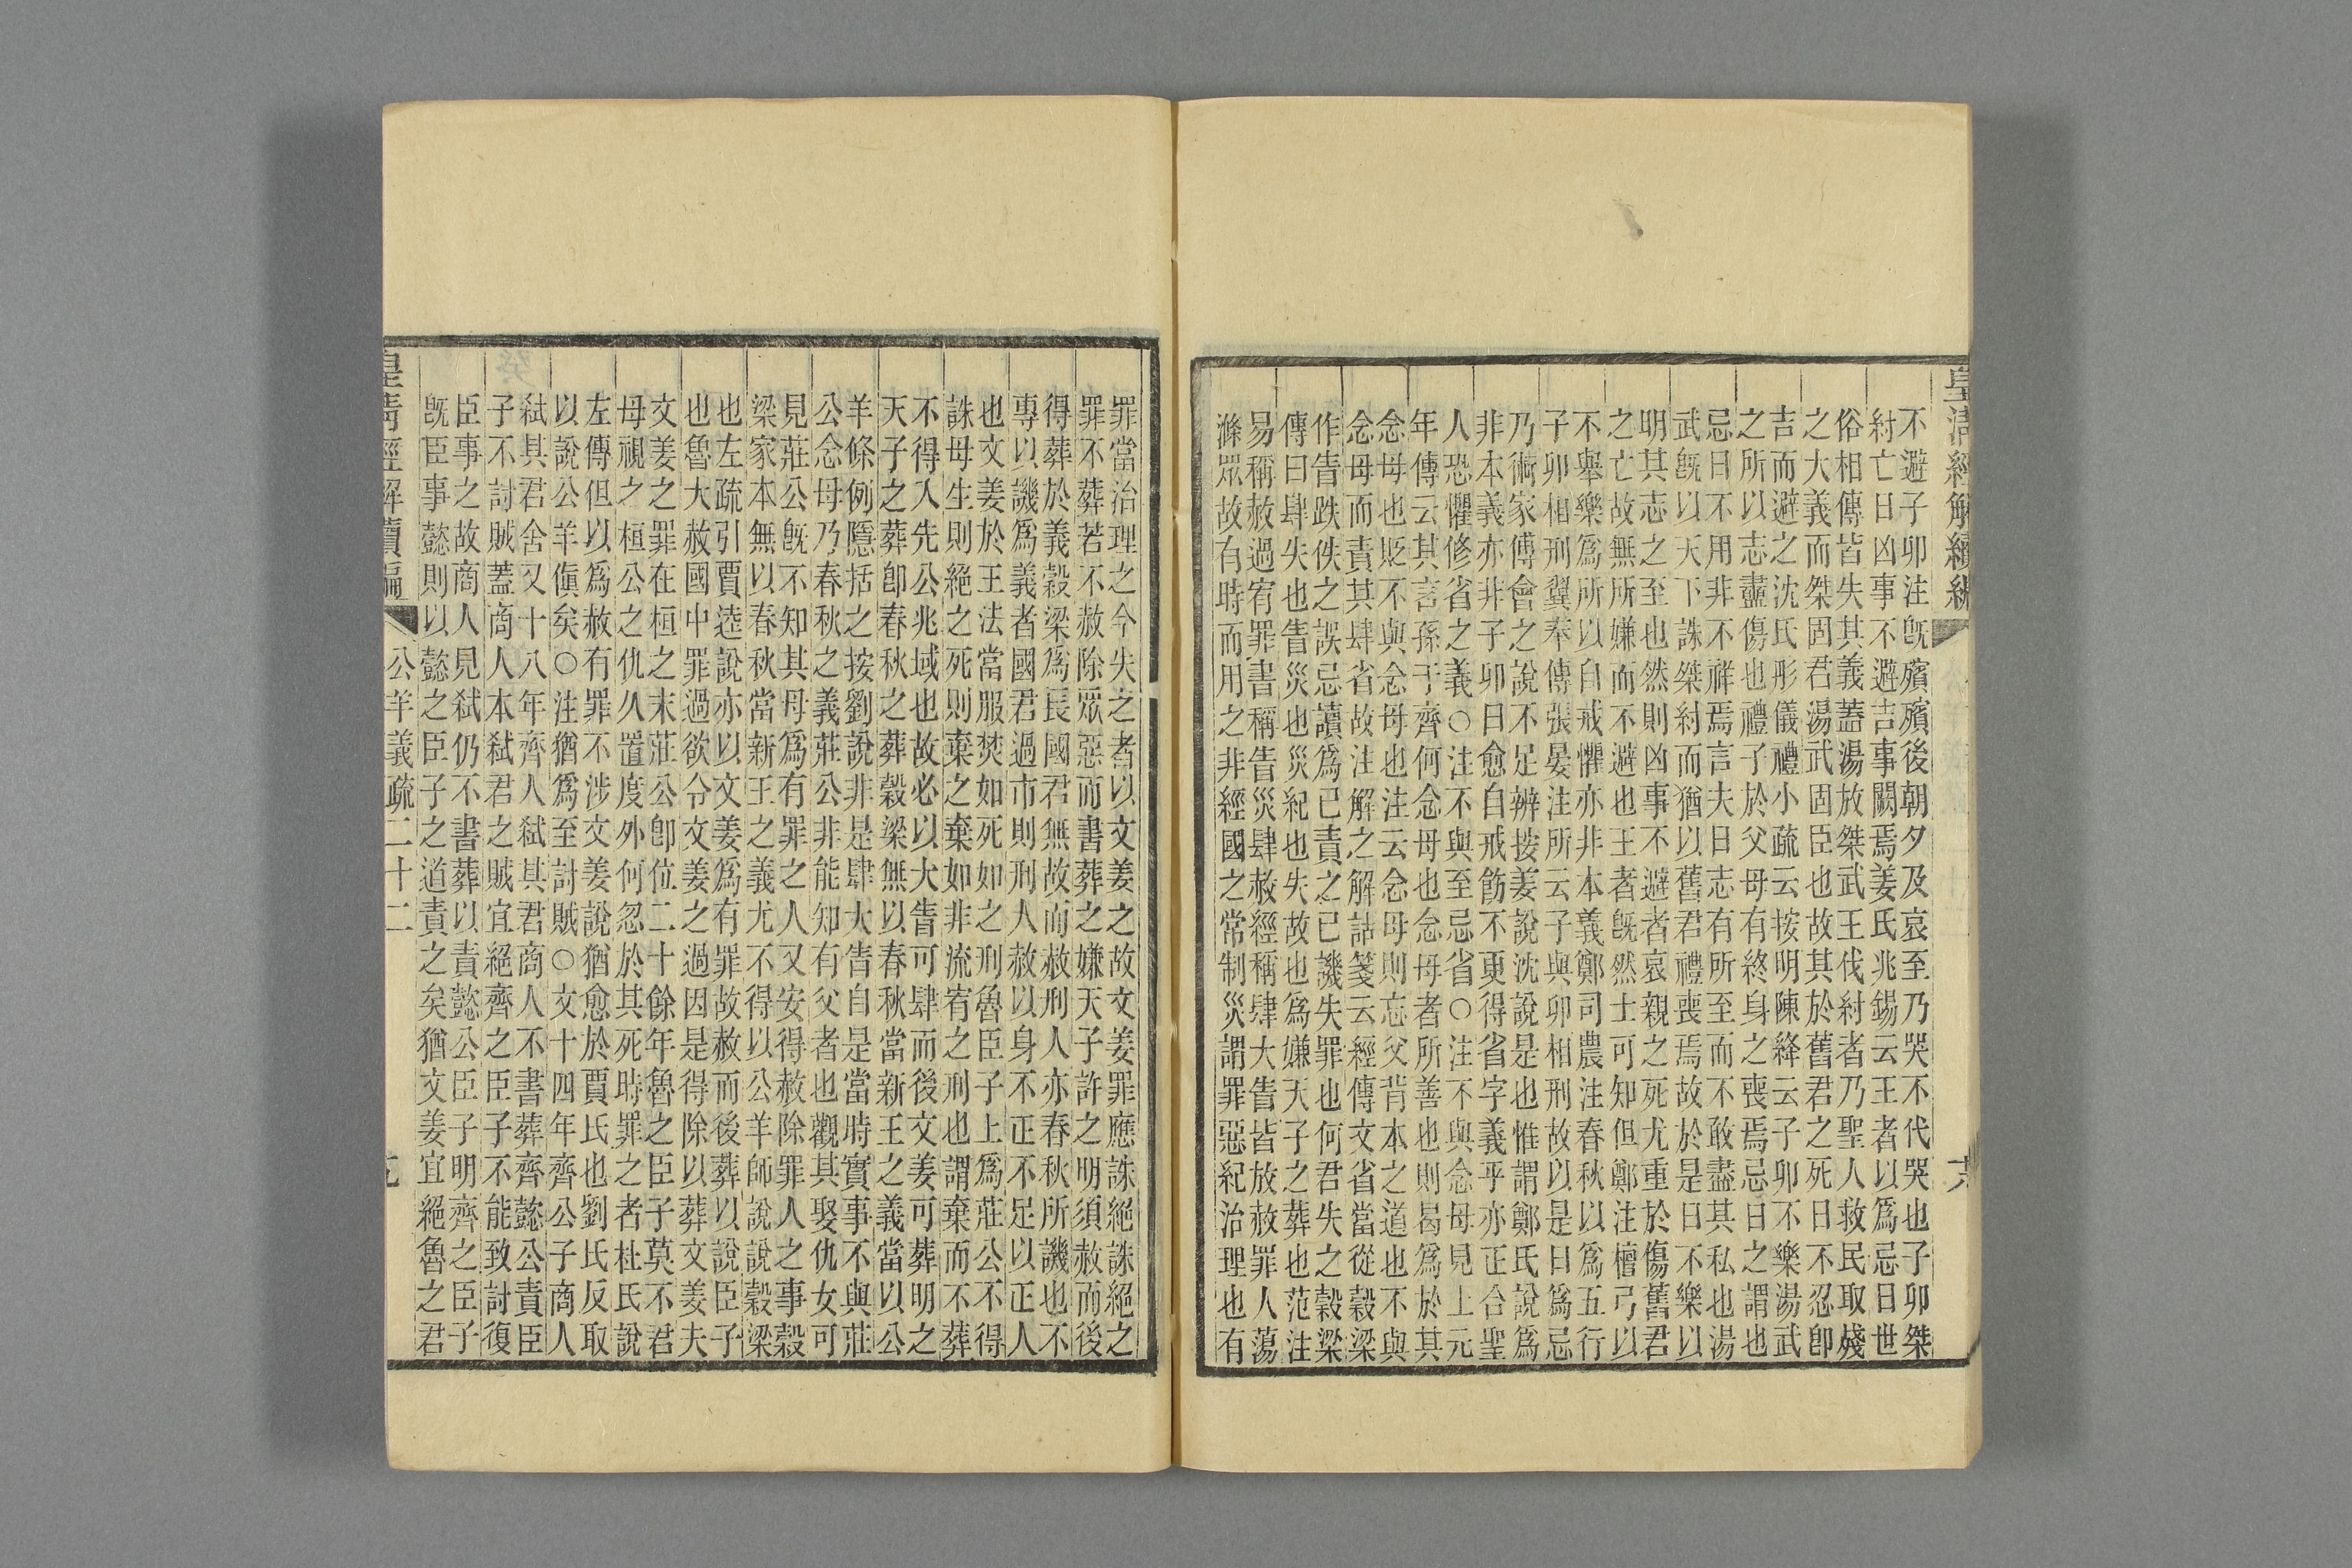 皇清經解續編
不避子卯注旣殯殯後朝夕及哀至乃哭不代哭也子卯桀
紂亡日凶事不避吉事闕焉姜氏兆錫云王者以爲忌日世
俗相傳皆失其義蓋湯放桀武王伐紂者乃聖人救民取殘
之大義而桀固君湯武固臣也故其於舊君之死日不忍卽
吉而避之沈氏彤儀禮小疏云按明陳絳云子卯不樂湯武
之所以志衋傷也禮子於父母有終身之喪焉忌日之謂也
忌日不用非不祥焉言夫日志有所至而不敢盡其私也湯
武旣以天下誅桀紂而猶以舊君禮喪焉故於是日不樂以
明其志之至也然則凶事不避者哀親之死尤重於傷舊君
之亡故無所嫌而不避也王者旣然士可知但鄭注檀弓以
不舉樂爲所以自戒懼亦非本義鄭司農注春秋以爲五行
子卯相刑翼奉傳張晏注所云子與卯相刑故以是日爲忌
乃術家傅會之說不足辨按姜說沈說是也惟謂鄭氏說爲
非本義亦非子卯日愈自戒飭不更得省字義乎亦正合聖
人恐懼修省之義○注不與至忌省○注不與念母見上元
年傳云其言孫于齊何念母也念母者所善也則曷爲於其
念母也貶不與念母也注云念母則忘父背本之道也不與
念母而責其肆省故注解之解詁箋云經傳文省當從穀梁
作眚跌佚之誤忌讀爲已責之已譏失罪也何君失之穀梁
傳曰肆失也眚災也災紀也失故也爲嫌天子之葬也范注
易稱赦過宥罪書稱眚災肆赦經稱肆大眚皆放赦罪人蕩
滌眾故有時而用之非經國之常制災謂罪惡紀治理也有
罪當治理之今失之者以文姜之故文姜罪應誅絕誅絕之
罪不葬若不赦除眾惡而書葬之嫌天子許之明須赦而後
得葬於義穀梁爲長國君無故而赦刑人亦春秋所譏也不
專以譏爲義者國君過市則刑人赦以身不正不足以正人
也文姜於王法當服焚如死如之刑魯臣子上爲莊公不得
誅母生則絕之死則棄之棄如非流宥之刑也謂棄而不葬
不得入先公兆域也故必以大眚可肆而後文姜可葬明之
天子之葬卽春秋之葬穀梁無以春秋當新王之義當以公
羊條例隱括之按劉說非是肆大眚自是當時實事不與莊
公念母乃春秋之義莊公非能知有父者也觀其娶仇女可
見莊公旣不知其母爲有罪之人又安得赦除罪人之事穀
梁家本無以春秋當新王之義尤不得以公羊師說說穀梁
也左疏引賈逵說亦以文姜爲有罪故赦而後葬以說臣子
也魯大赦國中罪過欲令文姜之過因是得除以葬文姜夫
文姜之罪在桓之末莊公卽位二十餘年魯之臣子莫不君
母視之桓公之仇久置度外何忍於其死時罪之者杜氏說
左傳但以爲赦有罪不涉文姜說猶愈於賈氏也劉氏反取
以說公羊傎矣○注猶爲至討賊○文十四年齊公子商人
弒其君舍又十八年齊人弒其君商人不書葬齊懿公責臣
子不討賊蓋商人本弒君之賊宜絕齊之臣子不能致討復
臣事之故商人見弒仍不書葬以責懿公臣子明齊之臣子
旣臣事懿則以懿之臣子之道責之矣猶文姜宜絕魯之君
皇清經解續編　公羊義疏二十二